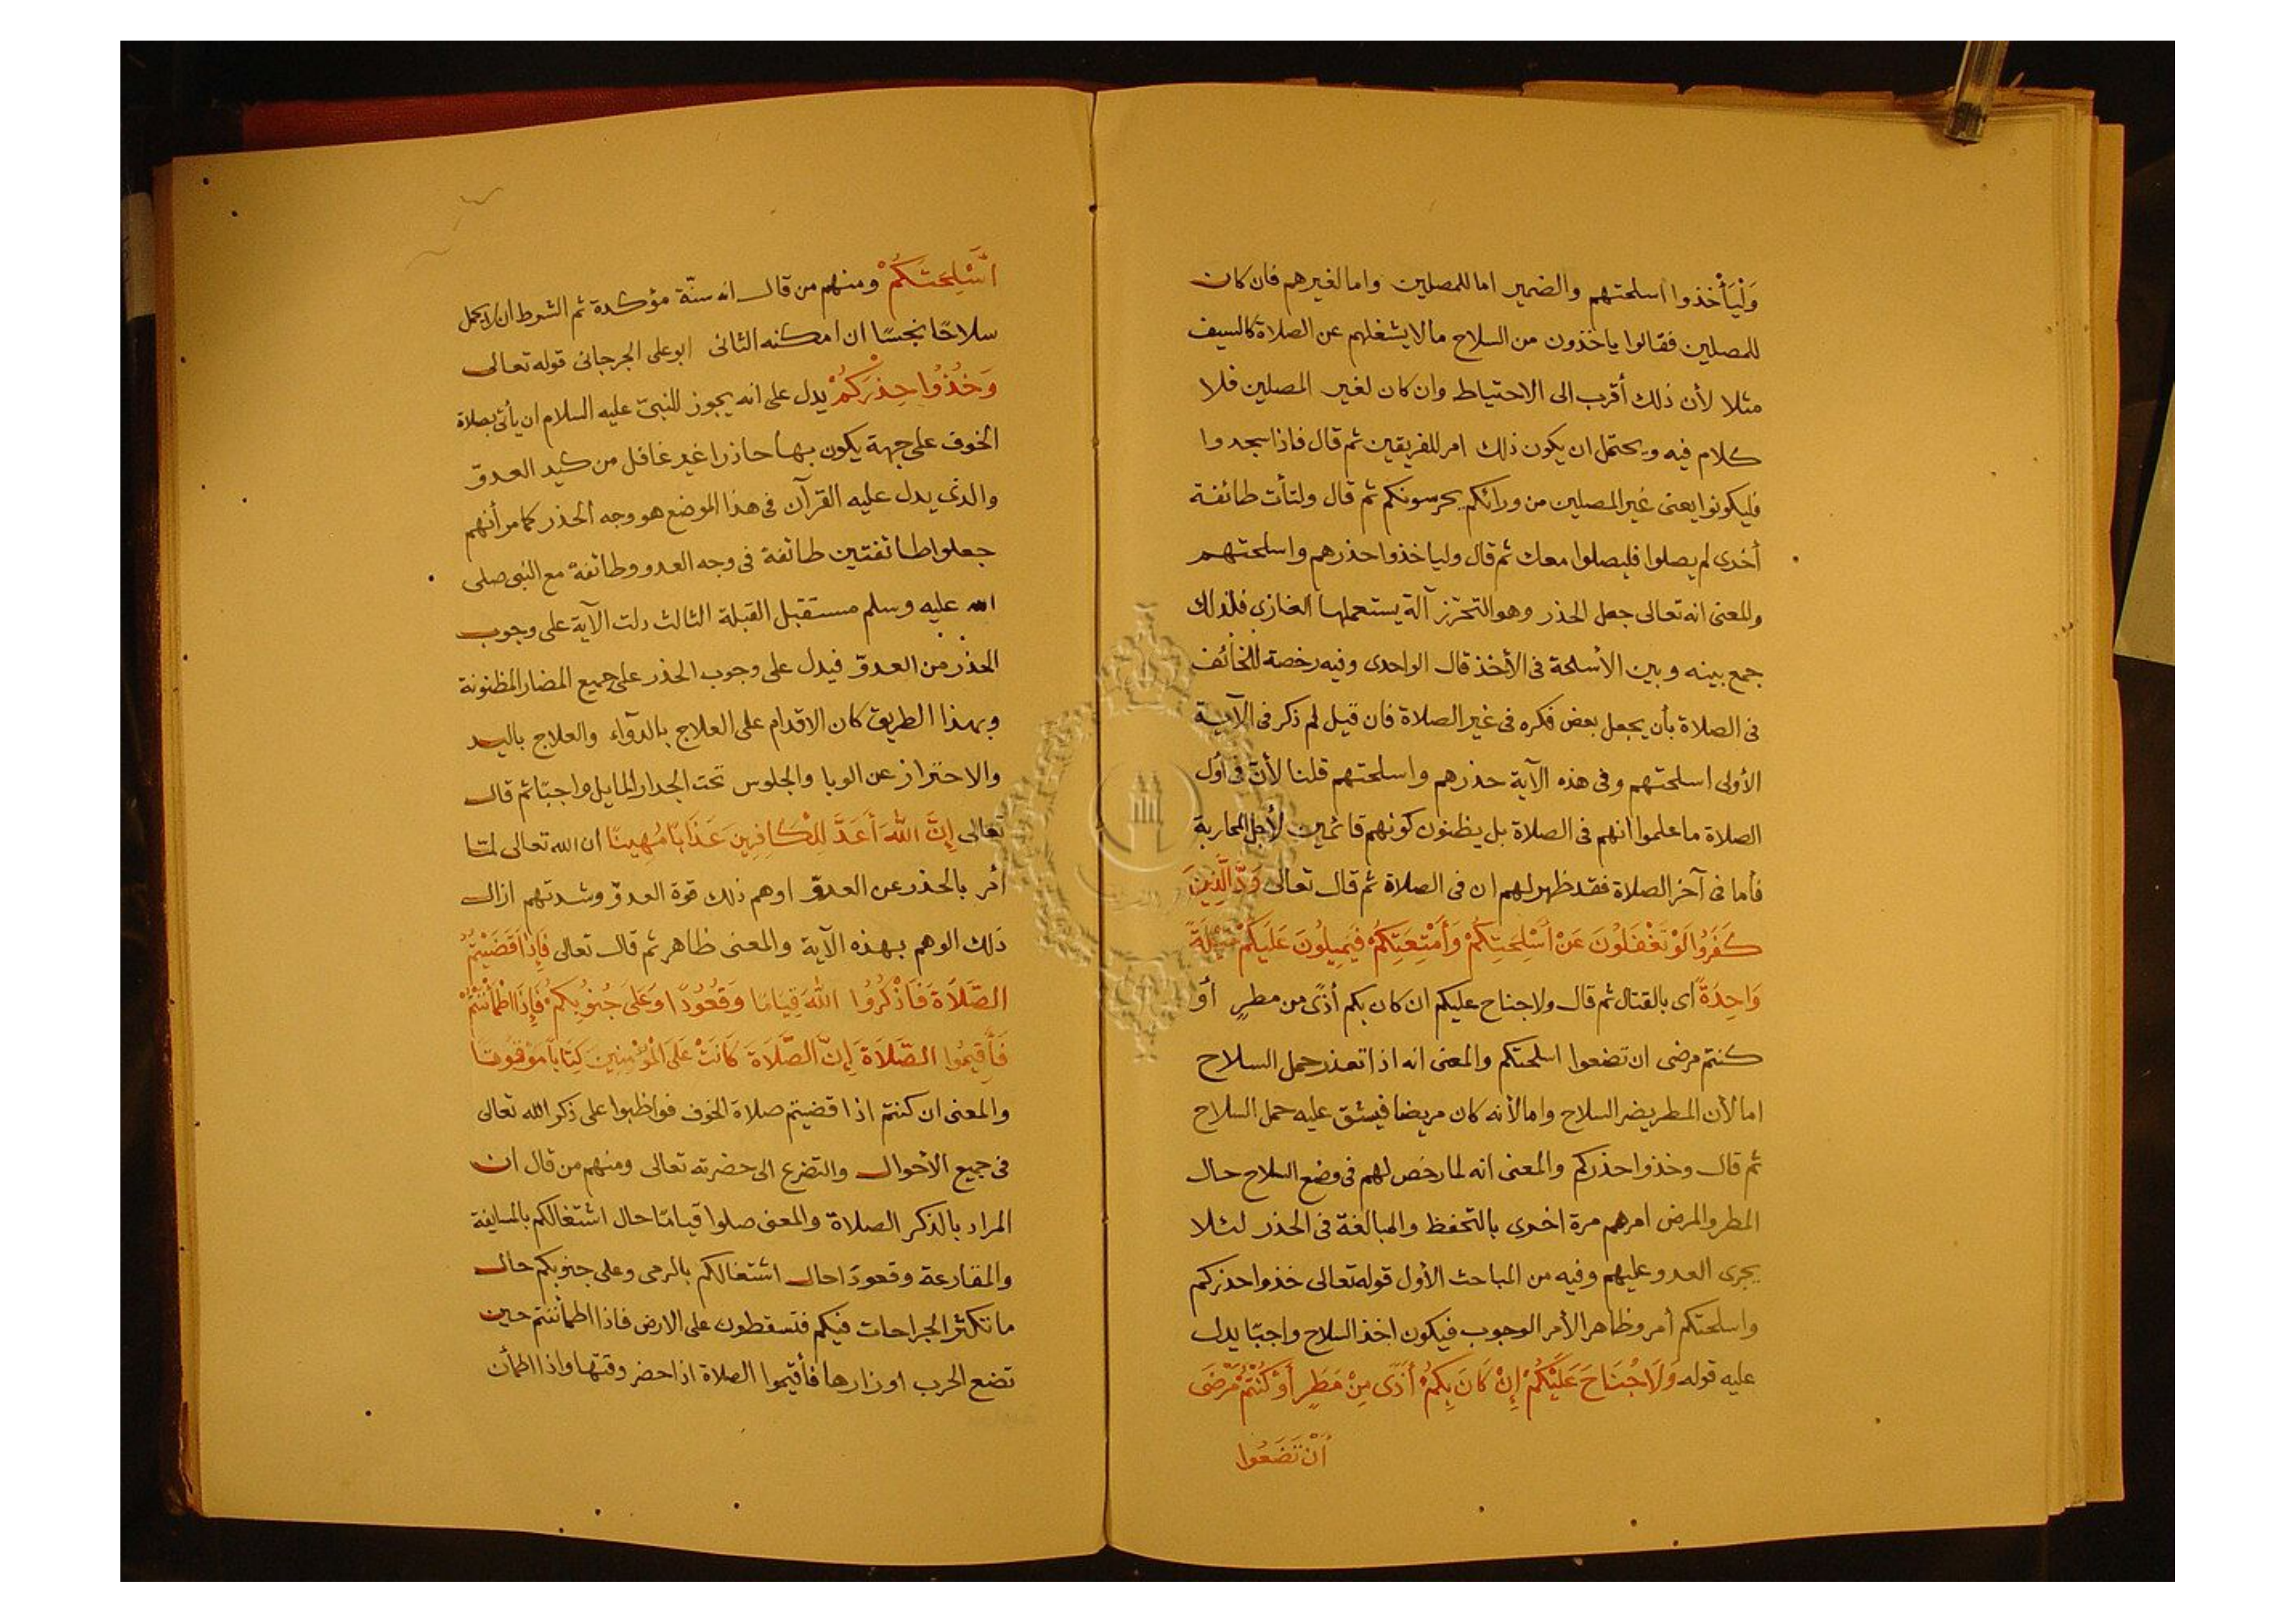 وَلْيَأْخذوا اسلحتهم والضمير اما للمصلين واما لغيرهم فان كان
للمصلين فقالوا ياخذون من السلاح مالا يشغلهم عن الصلاة كالسيف
مثلا لأن ذلك أقرب الى الاحتياط وان كان لغير المصلين فلا
كلام فيه ويحتمل ان يكون ذلك امر للفريقين ثم قال فاذا سجدوا
فليكونوا يعنى غير المصلين من ورائكم يحرسونكم ثم قال ولتأت طائفة
أخرى لم يصلوا فليصلوا معك ثم قال وليأخذوا حذرهم واسلحتهم
والمعنى انه تعالى جعل الحذر وهو التحرّز آلة يستعملها الغازي فلذلك
جمع بينه وبين الأسلحة فى الأخذ قال الواحدى وفيه رخصة للخائف
فى الصلاة بأن يجعل بعض فكره فى غير الصلاة فان قيل لم ذكر فى الآية
الأولى اسلحتهم وفى هذه الآية حذرهم واسلحتهم قلنا لأنّ فى أول
الصلاة ما علموا انهم فى الصلاة بل يظنون كونهم قائمين لأجل المحاربة
فأما فى آخر الصلاة فقد ظهر لهم ان فى الصلاة ثم قال تعالى وَدَّ الَّذِينَ
كَفَرُوا لَوْ تَغْفَلُونَ عَنْ أَسْلِحَتِكُمْ وَأَمْتِعَتِكُمْ فَيَمِيلُونَ عَلَيْكُمْ مَيْلَةً
وَاحِدَةً اى بالقتال ثم قال ولا جناح عليكم ان كان بكم أذًى من مطرٍ أو
كنتم مرضى ان تضعوا اسلحتكم والمعنى انه اذا تعذر حمل السلاح
اما لأن المطر يضر السلاح واما لأنه كان مريضا فيشق عليه حمل السلاح
ثم قال وخذوا حذركم والمعنى انه لما رخص لهم فى وضع السلاح حال
المطر والمرض امرهم مرة اخرى بالتحفظ والمبالغة فى الحذر لئلا
يجرى العدو عليهم وفيه من المباحث الأول قوله تعالى خذوا حذركم
واسلحتكم أمر وظاهر الأمر الوجوب فيكون اخذ السلاح واجبًا يدل
عليه قوله وَلَا جُنَاحَ عَلَيْكُمْ إِنْ كَانَ بِكُمْ أَذًى مِنْ مَطَرٍ أَوْ كُنْتُمْ مَرْضَى
أَنْ تَضَعُوا
أَسْلِحَتَكُمْ ومنهم من قال انه سنّة مؤكدة ثم الشرط ان لا يحمل
سلاحًا نجسًا ان امكنه الثانى ابو على الجرجانى قوله تعالى
وَخُذُوا حِذْرَكُمْ يدل على انه يجوز للنبيّ عليه السلام ان يأتى بصلاة
الخوف على جهة يكون بها حاذرا غير غافل من كيد العدوّ
والذى يدل عليه القرآن فى هذا الموضع هو وجه الحذر كما مر أنهم
جعلوا طائفتين طائفة فى وجه العدو وطائفة مع النبى صلى
الله عليه وسلم مستقبل القبلة الثالث دلت الآية على وجوب
الحذر من العدوّ فيدل على وجوب الحذر على جميع المضار المظنونة
وبهذا الطريق كان الاقدام على العلاج بالدوآء والعلاج باليد
والاحتراز عن الوبا والجلوس تحت الجدار المايل واجبًا ثم قال
تعالى إِنَّ اللهَ أَعَدَّ لِلْكَافِرِينَ عَذَابًا مُهِينًا ان الله تعالى لمّا
أمر بالحذر عن العدوّ اوهم ذلك قوة العدوّ وشدتهم ازال
ذلك الوهم بهذه الآية والمعنى ظاهر ثم قال تعالى فَإِذَا قَضَيْتُمُ
الصَّلَاةَ فَاذْكُرُوا اللهَ قِيَامًا وَقُعُودًا وَعَلَى جُنُوبِكُمْ فَإِذَا اطْمَأْنَنْتُمْ
فَأَقِيمُوا الصَّلَاةَ إِنَّ الصَّلَاةَ كَانَتْ عَلَى الْمُؤْمِنِينَ كِتَابًا مَوْقُوتًا
والمعنى ان كنتم اذا قضيتم صلاة الخوف فواظبوا على ذكر الله تعالى
فى جميع الأحوال والتضرع الى حضرته تعالى ومنهم من قال ان
المراد بالذكر الصلاة والمعنى صلوا قيامًا حال اشتغالكم بالمسايفة
والمقارعة وقعودًا حال اشتغالكم بالرمى وعلى جنوبكم حال
ما تكثر الجراحات فيكم فتسقطون على الارض فاذا اطمأننتم حين
تضع الحرب اوزارها فأقيموا الصلاة اذا حضر وقتها واذا اطمأن